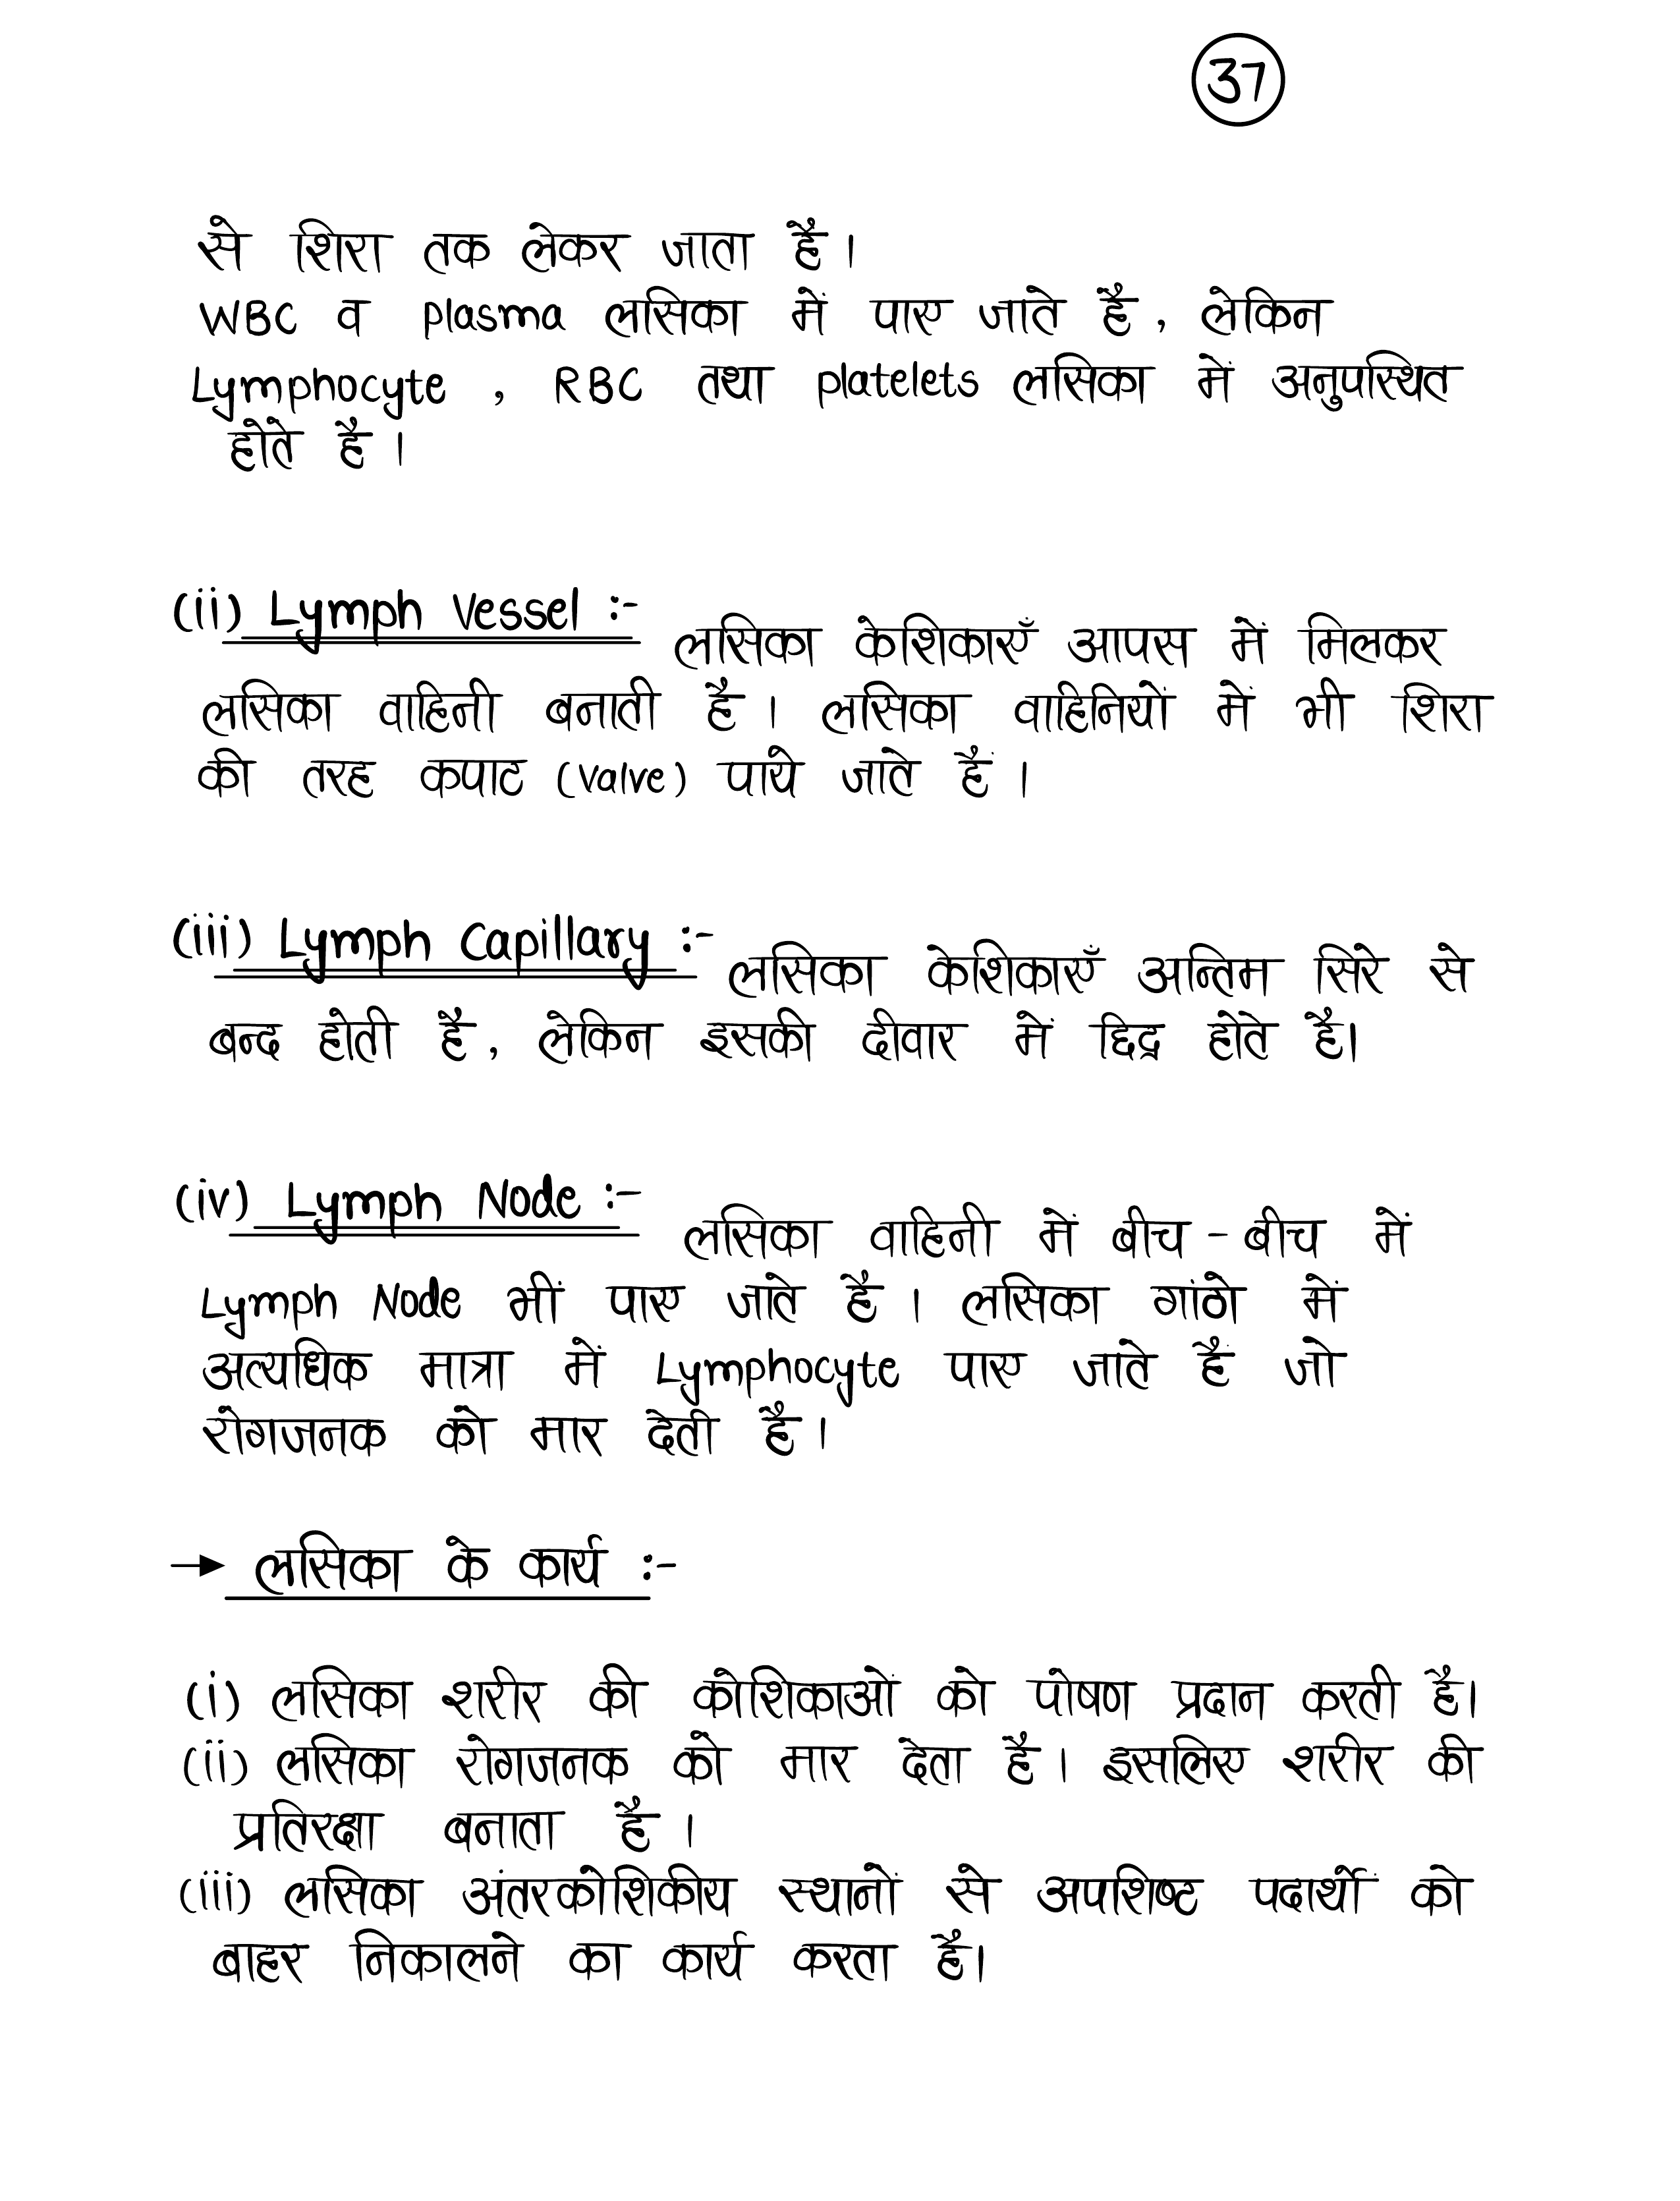 37
से शिरा तक लेकर जाता है।
WBC व plasma लसिका में पाए जाते है, लेकिन
Lymphocyte , RBC तथा platelets लसिका में अनुपस्थित
होते है।
(ii) Lymph Vessel :- लसिका केशिकाएँ आपस में मिलकर
लसिका वाहिनी बनाती है। लसिका वाहिनियों में भी शिरा
की तरह कपाट (valve) पाये जाते हैं।
(iii) Lymph Capillary :- लसिका केशिकाएँ अन्तिम सिरे से
बन्द होती है, लेकिन इसकी दीवार में छिद्र होते है।
(iv) Lymph Node :- लसिका वाहिनी में बीच - बीच में
Lymph Node भीं पाए जाते है। लसिका गांठो में
अत्यधिक मात्रा में Lymphocyte पाए जाते हैं जो
रोगजनक को मार देती है।
→ लसिका के कार्य :-
(i) लसिका शरीर की कोशिकाओं को पोषण प्रदान करती है।
(ii) लसिका रोगजनक को मार देता है। इसलिए शरीर की
प्रतिरक्षा बनाता है।
(iii) लसिका अंतरकोशिकीय स्थानों से अपशिष्ट पदार्थों को
बाहर निकालने का कार्य करता है।